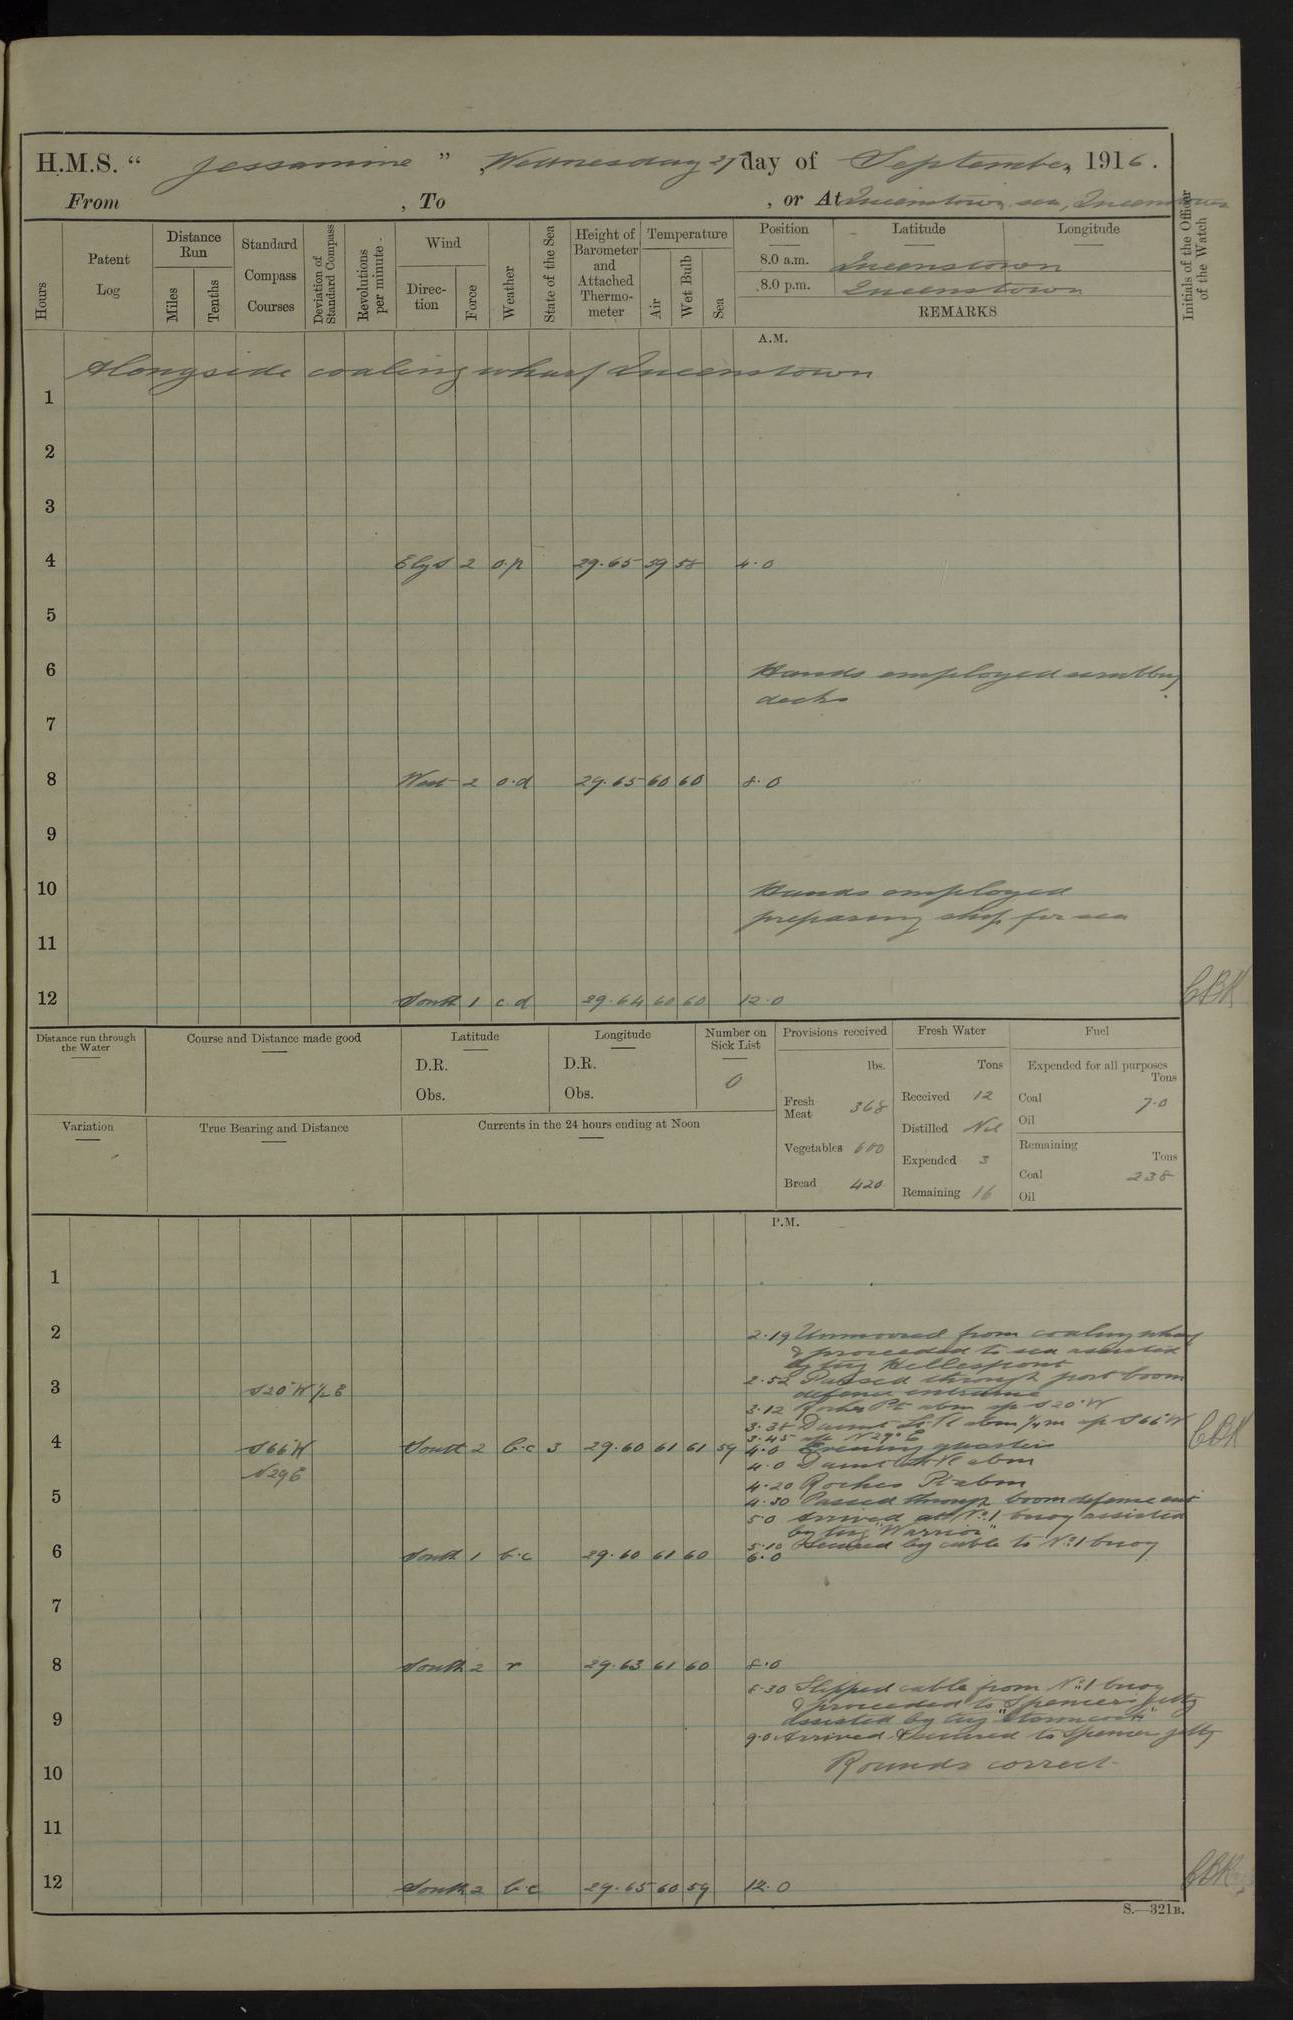 H.M.S. “ Jessamine ” , Wednesday 27 day of September, 1916.
From , To , or At Queenstown, sea, Queenstown
Hours
Patent Log
Distance Run
Miles
Tenths
Standard Compass Courses
Deviation of Standard Compass
Revolutions per minute
Wind
Direction
Force
Weather
State of the Sea
Height of Barometer and Attached Thermometer
Temperature
Air
Wet Bulb
Sea
Position
Latitude
Longitude
8.0 a.m. Queenstown
8.0 p.m. Queenstown
REMARKS
Initials of the Officer of the Watch
A.M.
Alongside coaling wharf Queenstown
1
2
3
4 Elyd 2 o.p 29.65 59 58 4.0
5
6 Hands employed scrubbing
decks
7
8 West 2 o.d 29.65 60 60 8.0
9
10 Hands employed
preparing ship for sea
11
12 South 1 c.d 29.64 60 60 12.0 CBK
Distance run through the Water
Course and Distance made good
Latitude
D.R.
Obs.
Longitude
D.R.
Obs.
Number on Sick List
0
Provisions received
lbs.
Fresh Meat 368
Vegetables 600
Bread 420
Fresh Water
Tons
Received 12
Distilled Nil
Expended 3
Remaining 16
Fuel
Expended for all purposes
Tons
Coal 7.0
Oil
Remaining
Tons
Coal 238
Oil
Variation
True Bearing and Distance
Currents in the 24 hours ending at Noon
P.M.
1
2 2.19 Unmoored from coaling wharf
& proceeded to sea assisted
by tug Hellespont
2.52 Passed through port boom
defence entrance
3 S20°W ½ E
3.12 Roches Pt abm s/c S20°W
3.38 Daunt Lt Vl abm ¼ m s/c S66°W
3.45 a/c N29°E
4 S66°W South 2 b.c 3 29.60 61 61 59 4.0 Evening quarters
N29E
4.0 Daunt Lt Vl abm
4.20 Roches Pt abm
5 4.30 Passed through boom defence ent
5.0 Arrived at No. 1 buoy assisted
by tug "Warrior"
5.10 Secured by cable to No. 1 buoy
6 South 1 b.c 29.60 61 60 6.0
7
8 South 2 r 29.63 61 60 8.0
8.30 Slipped cable from No. 1 buoy
& proceeded to Spencers jetty
9 assisted by tug "Stormcock"
9.0 Arrived & secured to Spencer jetty
10 Rounds correct
11
12 South 2 b.c 29.65 60 59 12.0 CBK
CBK
S.—321B.